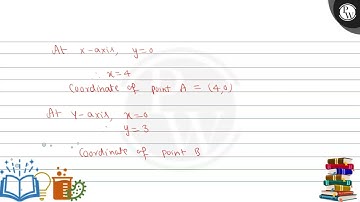 At x-axis, y=0
∴ x=4
Coordinate of point A = (4,0)
At y-axis, x=0
∴ y=3
Coordinate of point B